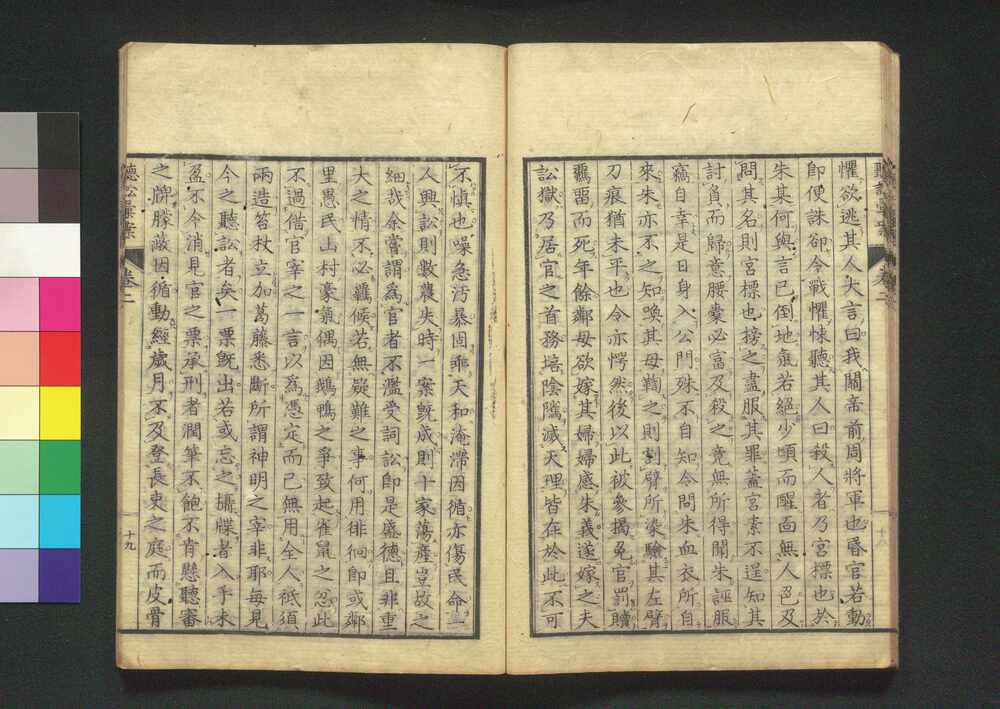 懼欲逃其人大言曰我關帝前周將軍也昏官若動
即便誅卻令戰懼悚聽其人曰殺人者乃宮標也於
朱某何與言已倒地氣若絕少頃而醒面無人色及
問其名則宮標也搒之盡服其罪蓋宮素不逞知其
討負而歸意腰橐必富及殺之竟無所得聞朱誣服
竊自幸是日身入公門殊不自知令問朱血衣所自
來朱亦不之知喚其母鞫之則割臂所染驗其左臂
刀痕猶未平也令亦愕然後以此被參揭免官罰贖
羈留而死年餘鄰母欲嫁其婦婦感朱義遂嫁之夫
訟獄乃居官之首務培陰隲滅天理皆在於此不可
聽訟彙案
卷二
十九
不愼也噪急汚暴固乖天和淹滯因循亦傷民命一
人興訟則數農失時一案既成則十家蕩產豈故之
細哉余嘗謂爲官者不濫受詞訟卽是盛德且非重
大之情不必羈候若無疑難之事何用徘徊卽或鄰
里愚民山村豪氣偶因鵝鴨之爭致起雀鼠之忍此
不過借官宰之一言以爲憑定而已無用全人祗須
兩造笞杖立加葛藤悉斷所謂神明之宰非耶每見
今之聽訟者矣一票旣出若或忘之攝牒者入手未
盈不令消見官之票承刑者潤筆不飽不肯懸聽審
之牌朦蔽因循動經歲月不及登長吏之庭而皮骨